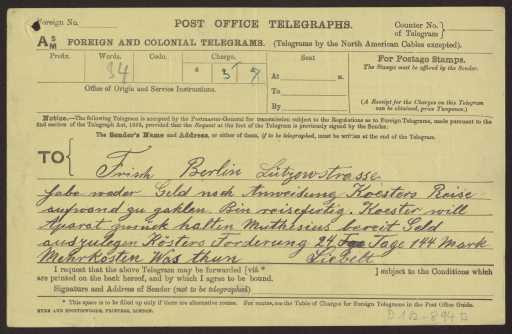 Foreign No.
POST OFFICE TELEGRAPHS.
Counter No. of Telegram
A S M FOREIGN AND COLONIAL TELEGRAMS. (Telegrams by the North American Cables excepted).
Prefix. Words. Code. Charge. Sent For Postage Stamps.
The Stamps must be affixed by the Sender.
34
At M.
To
Office of Origin and Service Instructions.
By
(A Receipt for the Charges on this Telegram can be obtained, price Twopence.)
Notice.—The following Telegram is accepted by the Postmaster-General for transmission subject to the Regulations as to Foreign Telegrams, made pursuant to the
2nd section of the Telegraph Act, 1885, provided that the Request at the foot of the Telegram is previously signed by the Sender.
The Sender's Name and Address, or either of them, if to be telegraphed, must be written at the end of the Telegram.
TO Frish Berlin Lützowstrasse
habe weder Geld noch Anweisung Koesters Reise
aufwand zu zahlen. Bin reisefertig. Koester will
Aparat zurück halten Muthesius bereit Geld
auszulegen Kösters Forderung 24 Tage 144 Mark
Mehrkosten Was thun Liebelt
I request that the above Telegram may be forwarded [via * ] subject to the Conditions which
are printed on the back hereof, and by which I agree to be bound.
Signature and Address of Sender (not to be telegraphed)
* This space is to be filled up only if there are alternative routes. For routes, see the Table of Charges for Foreign Telegrams in the Post Office Guide.